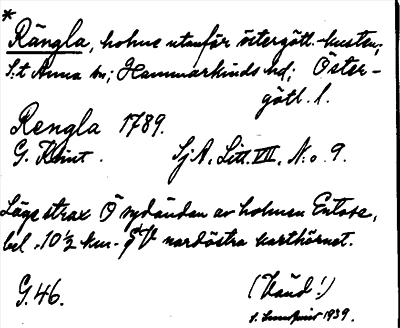 *
Rängla, holme utanför östergötl.-kusten;
S:t Anna sn; Hammarkinds hd; Öster-
götl. l.
Rengla 1789.
G. Klint. Sj.A. Litt. VIII, N:o 9.
Läge strax Ö sydändan av holmen Entose,
bel. 10½ km. SV nordöstra karthörnet.
G. 46. (Vänd!)
1939.